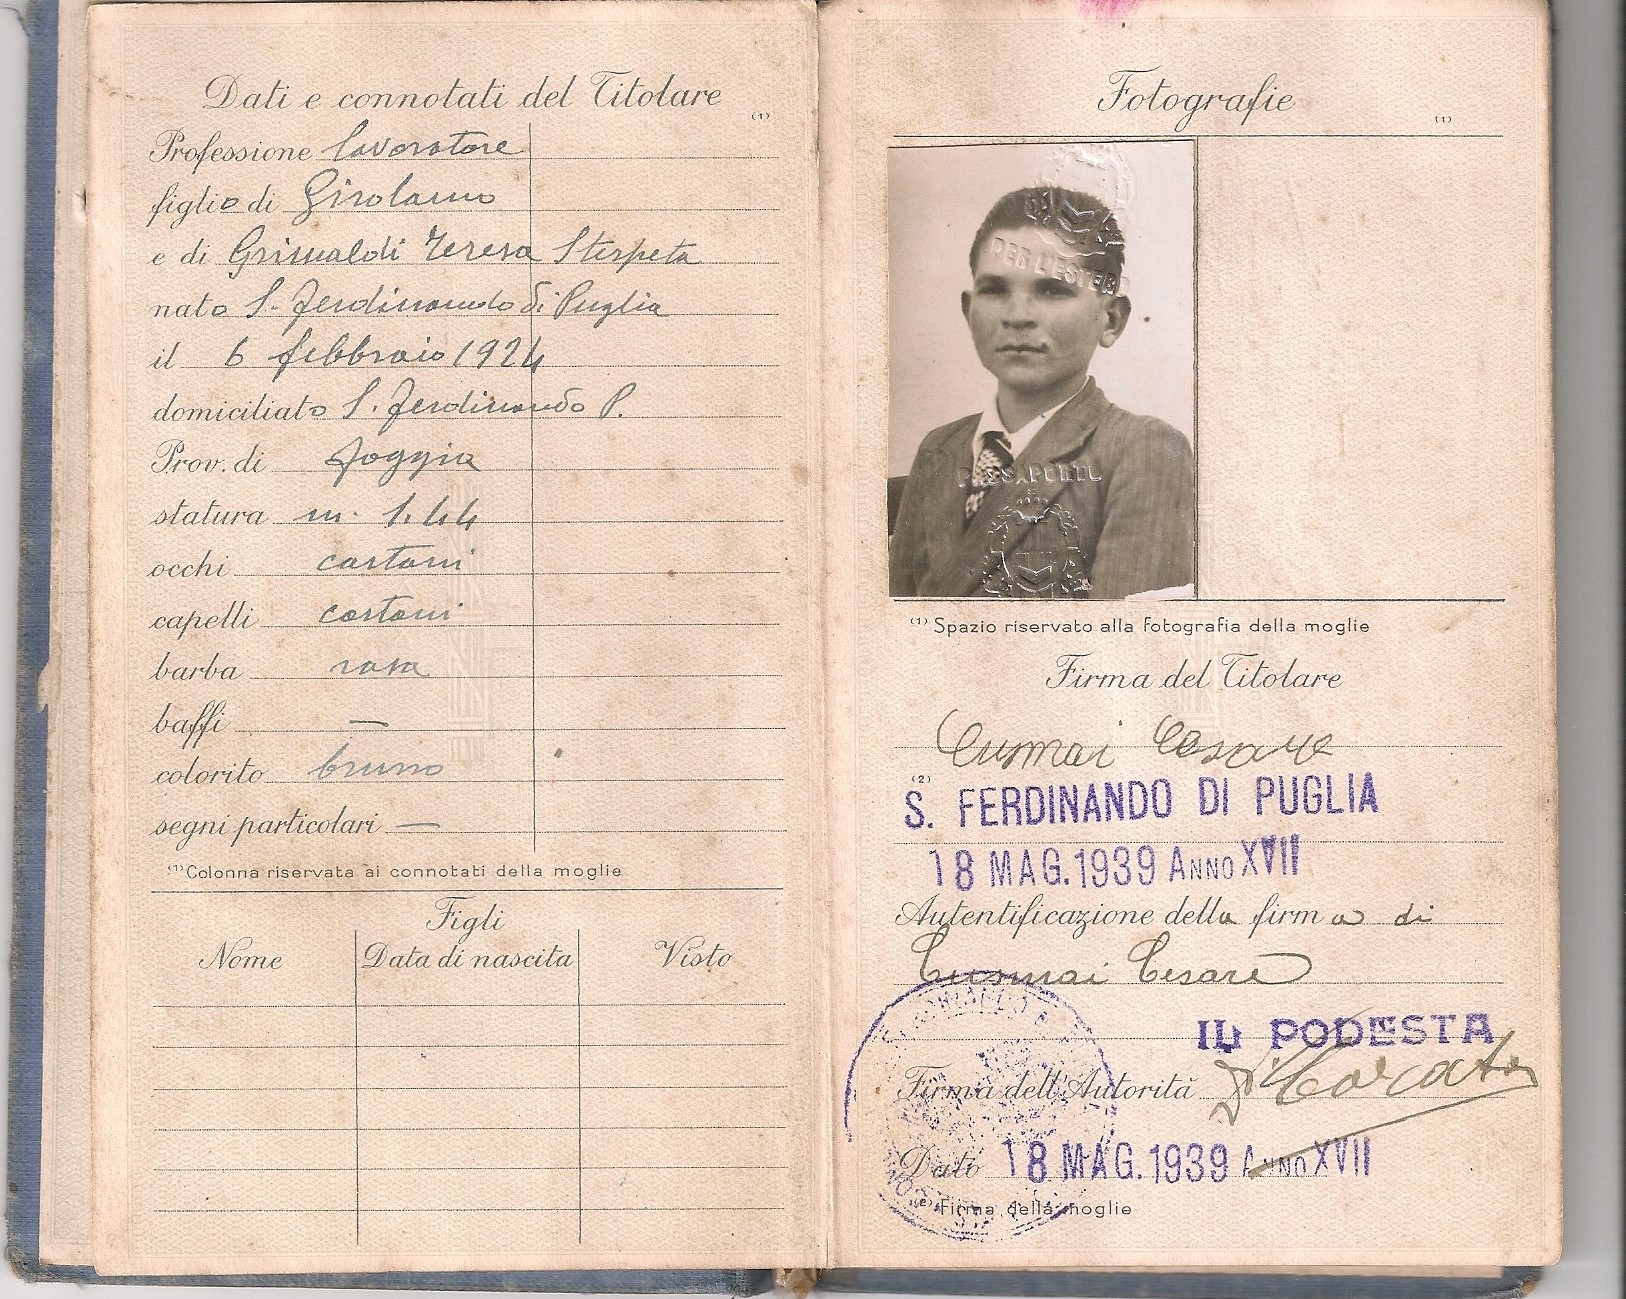 Dati e connotati del Titolare
(1)
Professione lavoratore
figlio di Girolamo
e di Grimaldi Teresa Sterpeta
nato S. Ferdinando di Puglia
il 6 febbraio 1924
domiciliato S. Ferdinando P.
Prov. di Foggia
statura m. 1.44
occhi castani
capelli castani
barba rasa
baffi —
colorito bruno
segni particolari —
(1) Colonna riservata ai connotati della moglie
Figli
Nome Data di nascita Visto
Fotografie
(1)
PER L'ESTERO
PASSAPORTO
(1) Spazio riservato alla fotografia della moglie
Firma del Titolare
Cusmai Cesare
(2)
S. FERDINANDO DI PUGLIA
18 MAG. 1939 ANNO XVII
Autentificazione della firma di
Cusmai Cesare
IL PODESTA
Firma dell'Autorità
Data 18 MAG. 1939 ANNO XVII
(2) Firma della moglie